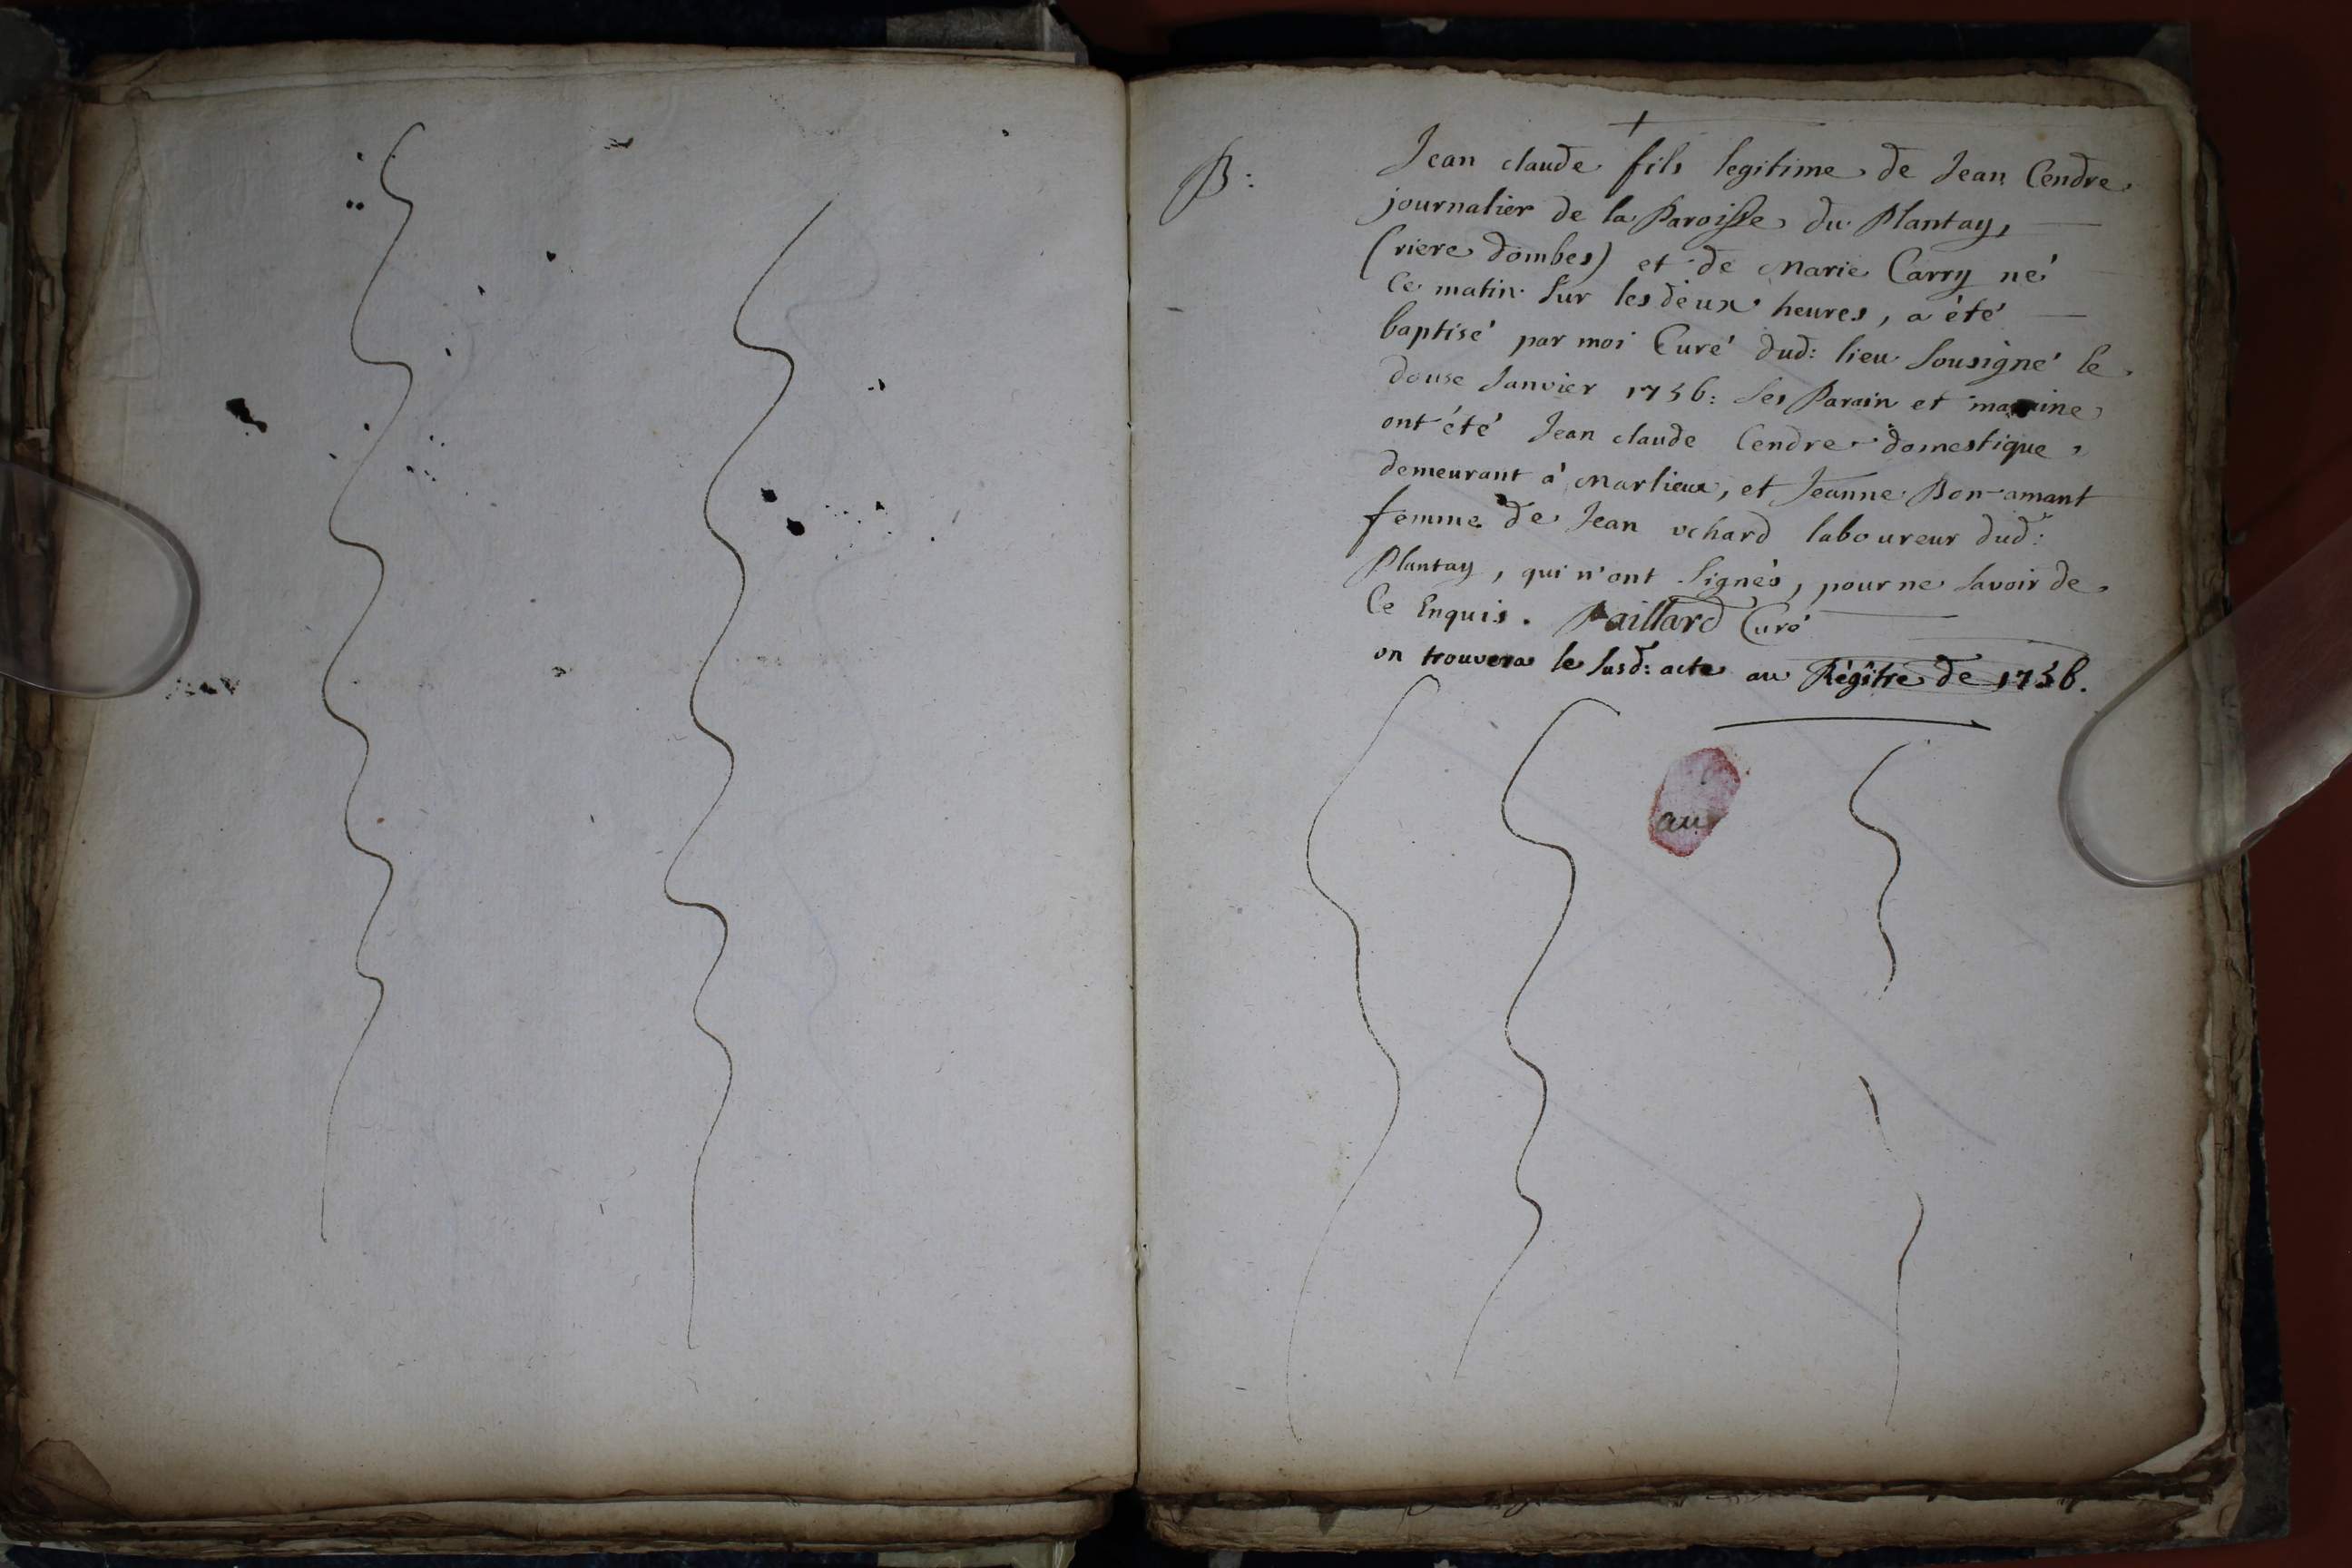 B:
Jean claude fils legitime de Jean Cendre
journalier de la Paroisse du Plantay,
(riere dombes) et de Marie Carry né
Ce matin sur les deux heures, a été
baptisé par moi Curé dud: lieu sousigné le
douse Janvier 1756: ses Parain et maraine
ont été Jean claude Cendre domestique,
demeurant à Marlieux, et Jeanne Bon-amant
femme de Jean ochard laboureur dud:
Plantay, qui n'ont signés, pour ne savoir de
Ce Enquis. Paillard Curé
on trouvera le susd: acte au Régître de 1756.
au